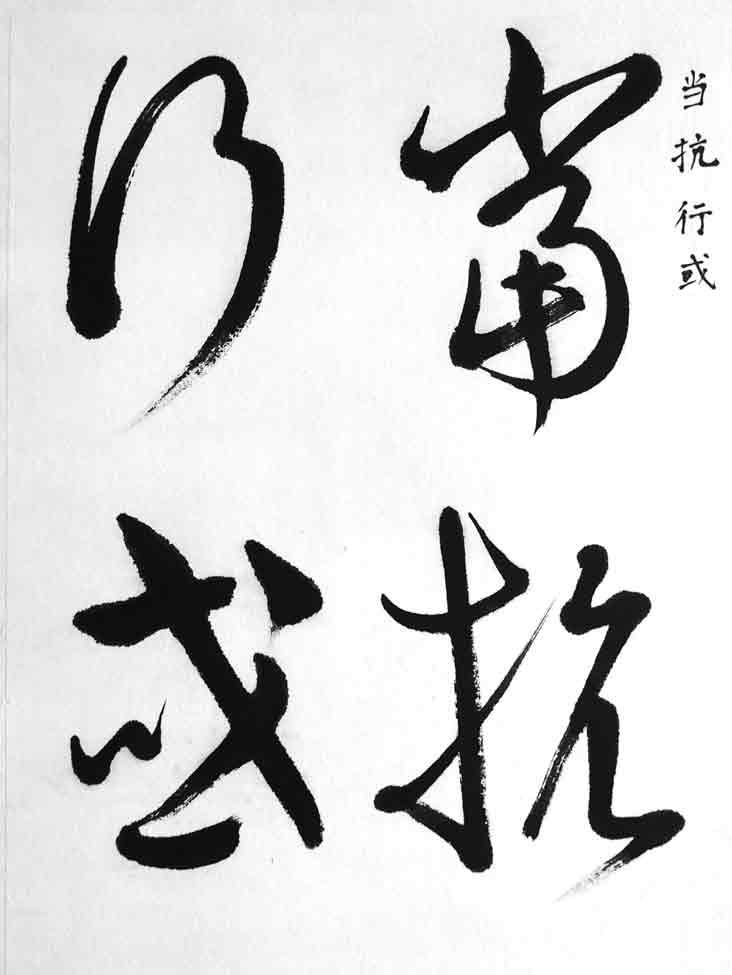 当抗行或
當抗
行或